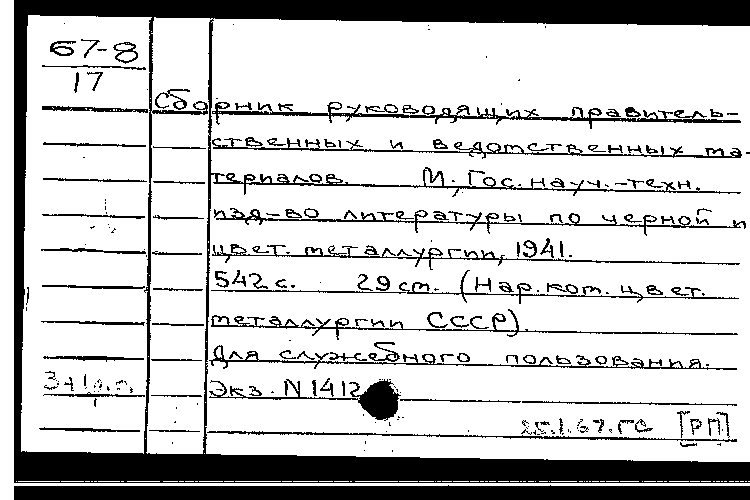 67-8
17
Сборник руководящих правитель-
ственных и ведомственных ма-
териалов. М., Гос. науч.-техн.
изд-во литературы по черной и
цвет. металлургии, 1941.
542 с. 29 см. (Нар. ком. цвет.
металлургии СССР).
Для служебного пользования.
Экз. N 1412
25.1.67. ГС [РП]